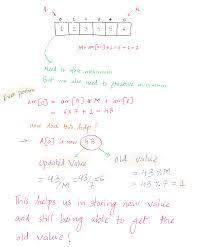 0 1 2 3 4 5
1 2 3 4 5 6
M = arr[n-1]+1 = 6+1 = 7
Need to store maximum
But we also need to preserve minimum
Even position
arr[0] = arr[n] * M + arr[0]
= 6x7 + 1 = 43
How does this help?
→ A[0] is now 43
Updated Value
old value
= 43/M = 43/7 = 6
= 43 % M
= 43 % 7 = 1
This helps us in storing new value
and still being able to get the
old value!